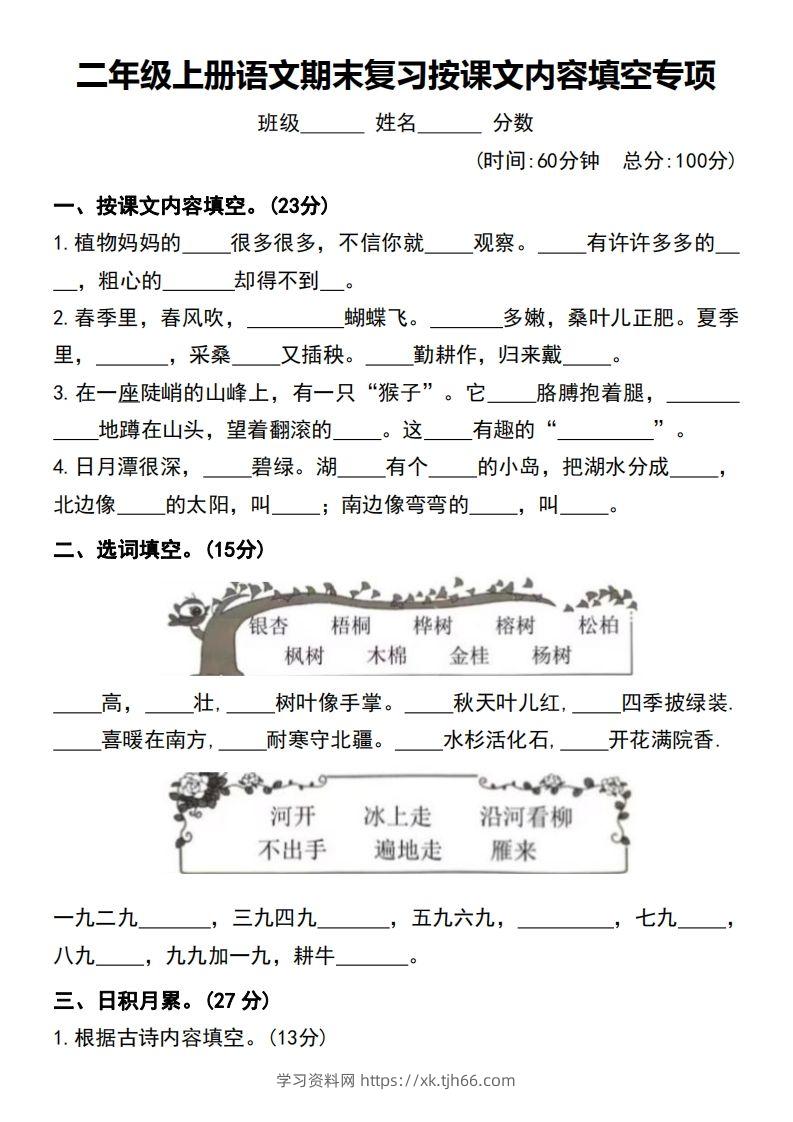 二年级上册语文期末复习按课文内容填空专项
班级______ 姓名______ 分数
(时间:60分钟 总分:100分)
一、按课文内容填空。(23分)
1.植物妈妈的____很多很多，不信你就____观察。____有许许多多的__
__，粗心的______却得不到__。
2.春季里，春风吹，________蝴蝶飞。______多嫩，桑叶儿正肥。夏季
里，______，采桑____又插秧。____勤耕作，归来戴____。
3.在一座陡峭的山峰上，有一只“猴子”。它____胳膊抱着腿，______
____地蹲在山头，望着翻滚的____。这____有趣的“________”。
4.日月潭很深，____碧绿。湖____有个____的小岛，把湖水分成____，
北边像____的太阳，叫____；南边像弯弯的____，叫____。
二、选词填空。(15分)
银杏 梧桐 桦树 榕树 松柏
枫树 木棉 金桂 杨树
____高，____壮,____树叶像手掌。____秋天叶儿红,____四季披绿装.
____喜暖在南方,____耐寒守北疆。____水杉活化石,____开花满院香.
河开 冰上走 沿河看柳
不出手 遍地走 雁来
一九二九______，三九四九______，五九六九，________，七九____，
八九____，九九加一九，耕牛______。
三、日积月累。(27 分)
1.根据古诗内容填空。(13分)
学习资料网 https://xk.tjh66.com